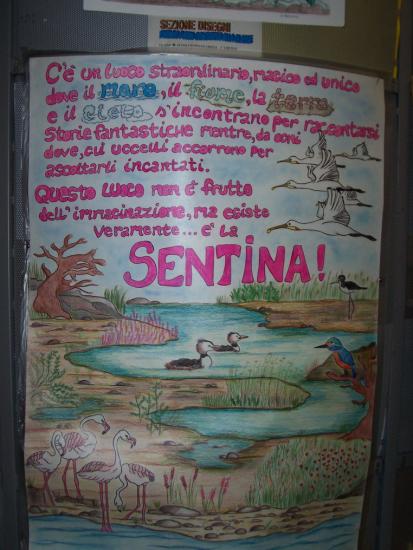 SEZIONE DISEGNI
C'è un luogo straordinario, magico ed unico
dove il mare, il fiume, la terra
e il cielo s'incontrano per raccontarsi
storie fantastiche mentre, da ogni
dove, gli uccelli accorrono per
ascoltarli incantati.
Questo luogo non è frutto
dell'immaginazione, ma esiste
veramente... è la
SENTINA!